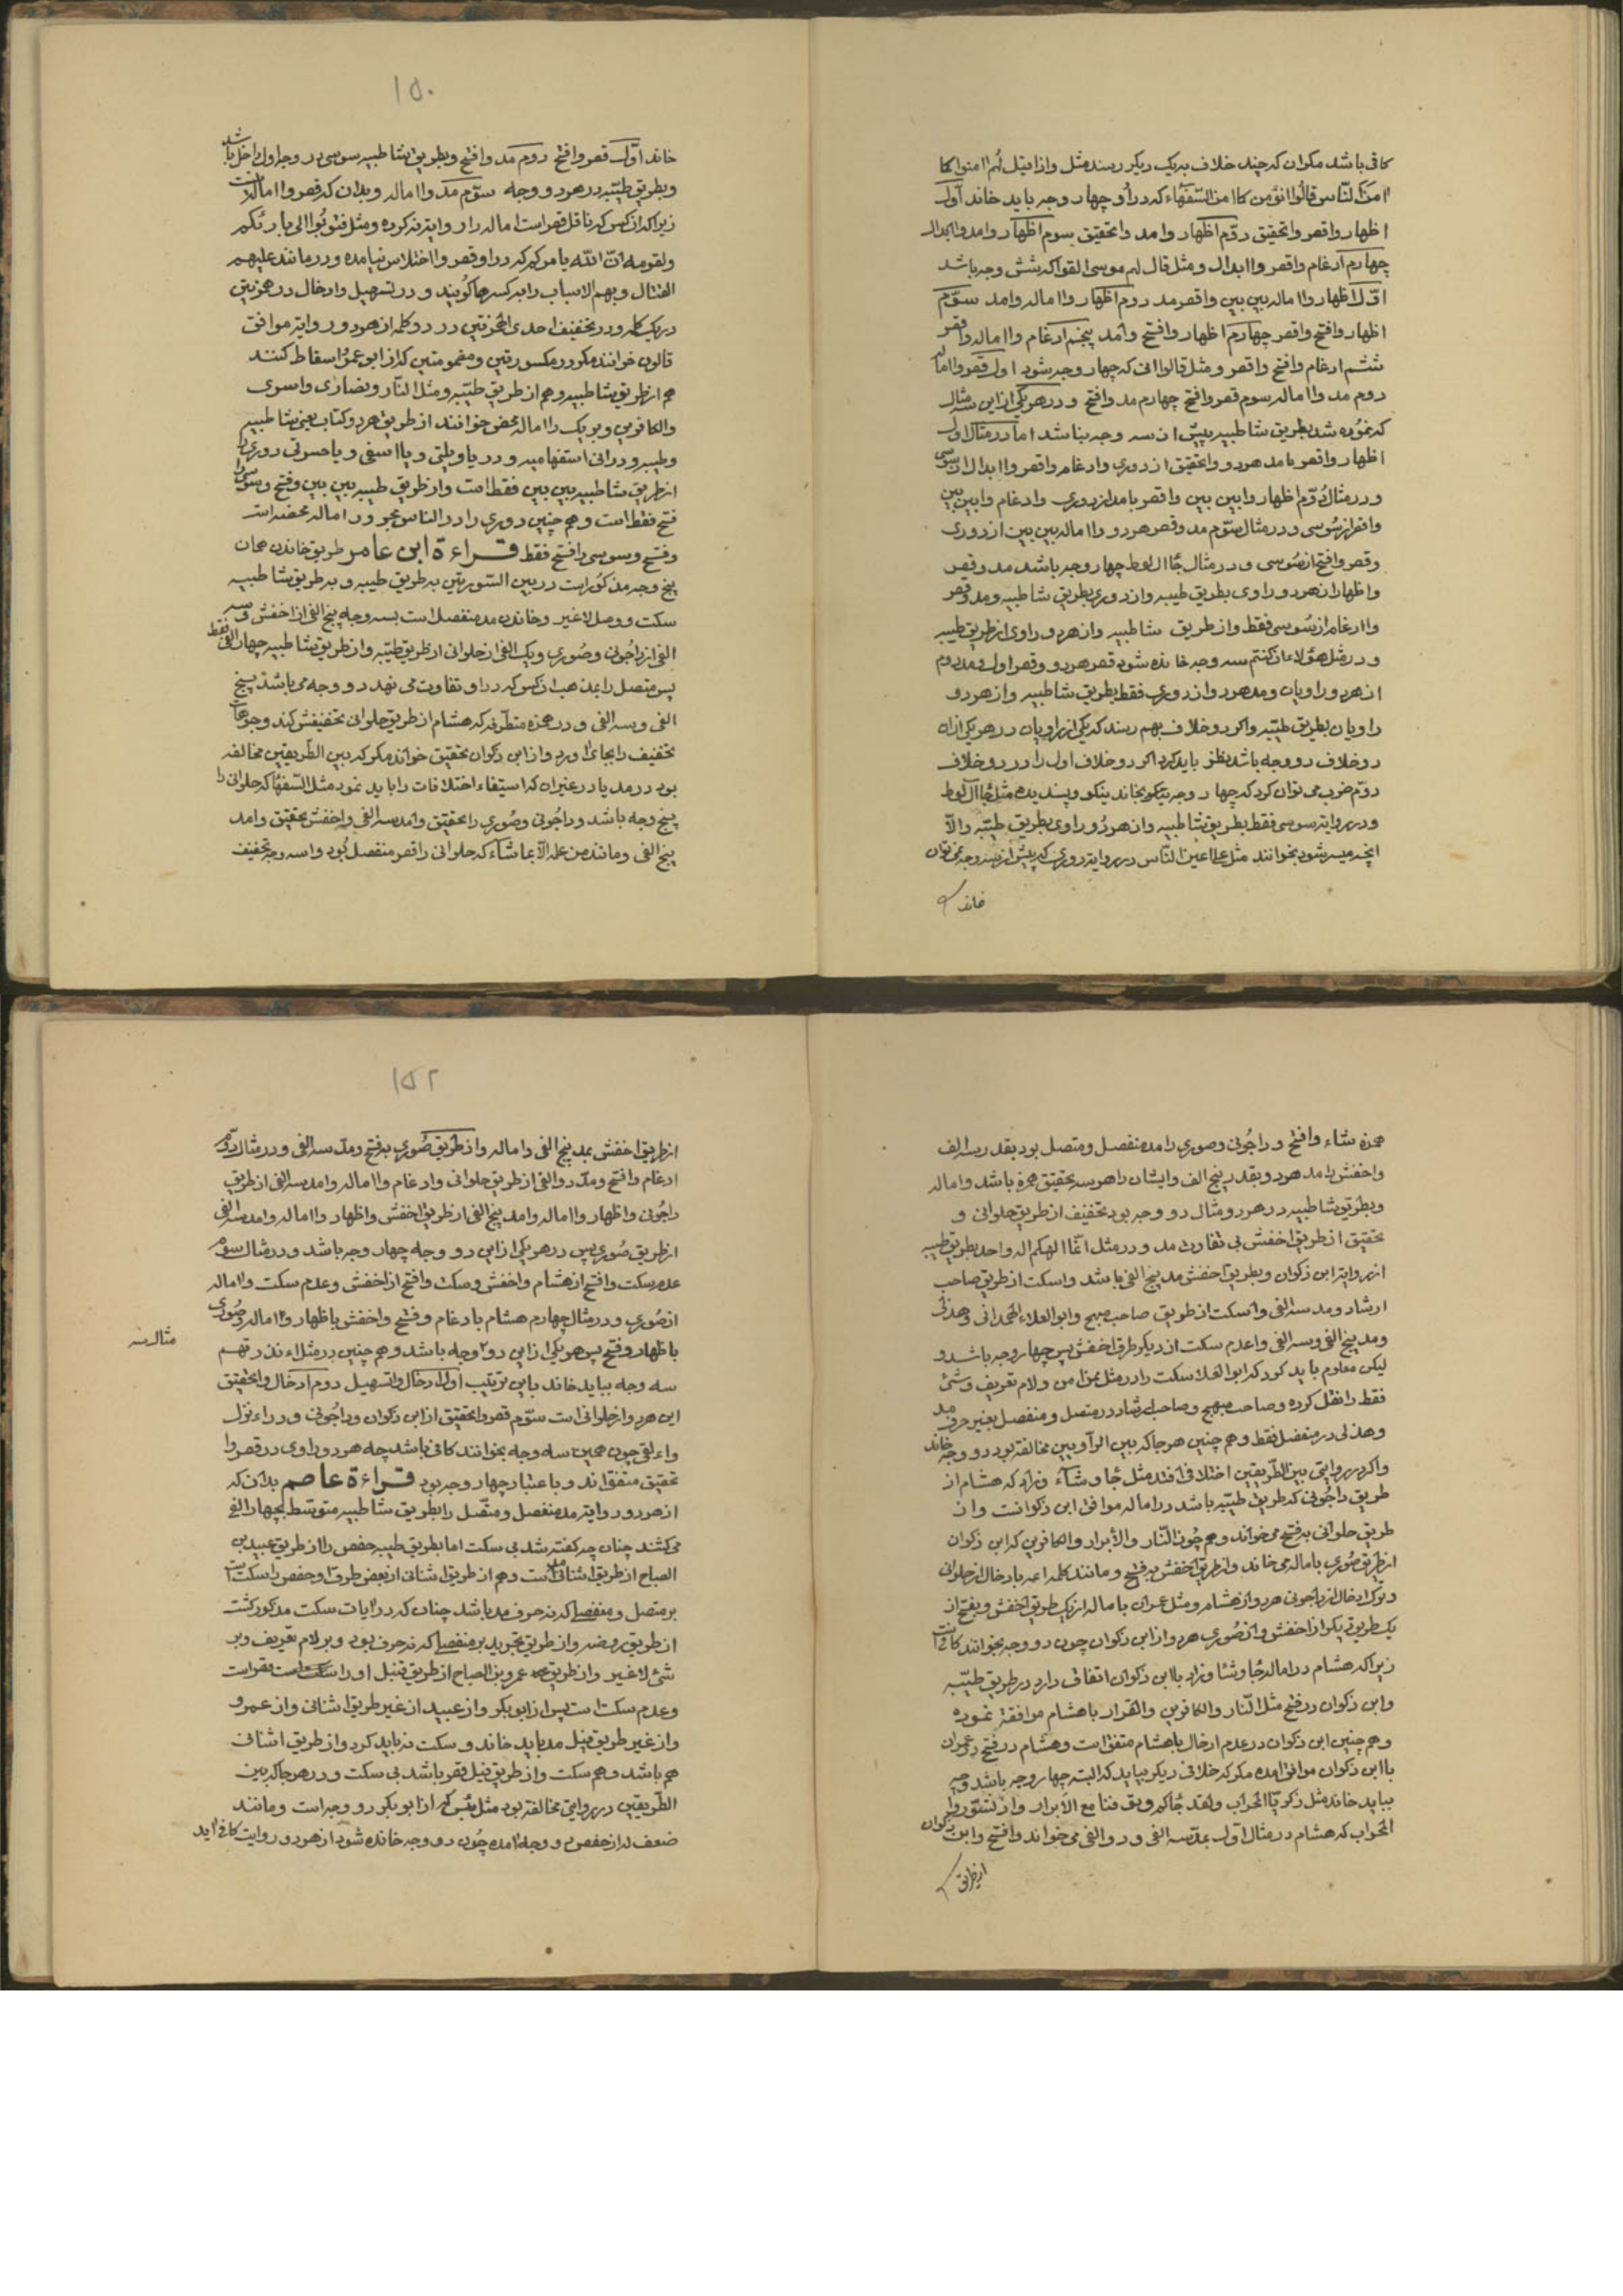 کافی باشد مکر ان که چند خلاف بریک دیکر رسند مثل واذا قیل لهم امنوا کما
امن الناس قالوا انؤمن کما امن السفهاء که در او چهار وجه باید خاند اول
اظهار واقصر واتحقیق دوم اظهار وامد واتحقیق سوم اظهار وامد وابدال
چهارم ادغام واقصر واابدال ومثل قال لهم موسی القوا که شش وجه باشد
اول اظهار واامالهٔ بین بین واقصر مد دوم اظهار واامالہ وامد سوم
اظهار وافتح واقصر چهارم اظهار وافتح وامد پنجم ادغام واامالہ واقصر
ششم ادغام وافتح واقصر ومثل قالوا انی که چهار وجه شود اول قصر واامالہ
دوم مد واامالہ سوم قصر وافتح چهارم مد وافتح ودر هریکی از این سه مثال
که نموده شد بطریق شاطبیه بیش از سه وجه نباشد اما در مثال اول
اظهار واقصر یا مد هردو واتحقیق از دوری وادغام واقصر واابدال از سوسی
ودر مثال دوم اظهار وابین بین واقصر یا مد از دوری وادغام وابین بین
واقصر از سوسی ودر مثال سوم مد وقصر هردو واامالہ بین بین از دوری
وقصر وافتح از سوسی ودر مثال جاآل لوط چهار وجه باشد مد وقصر
واظهار از هردو راوی بطریق طیبه واز دوری بطریق شاطبیه ومد وقصر
واادغام از سوسی فقط واز طریق شاطبیه واز هردو راوی از طریق طیبه
ودر مثل هؤلاء ان کنتم سه وجه خانده شود قصر هردو وقصر اول ومد دوم
از هردو راویان ومد هردو واز دوری فقط بطریق شاطبیه واز هردو
راویان بطریق طیبه واکر دو خلاف بهم رسند که یکی از راویان در هریکی از ان
دو خلاف دو وجه باشد نظر باید کرد اکر دو خلاف اول را در دو خلاف
دوم ضرب می توان کرد که چهار وجه نیکو بخاند نیکو وپسندیده مثل جاآل لوط
ودر روایة سوسی فقط بطریق شاطبیه واز هردو راوی بطریق طیبه والا
انچه میسر شود بخوانند مثل علی اعین الناس در روایة دوری که بیش از سه وجه نمی توان
خاند
۱۵۰
خاند اول قصر وافتح دوم مد وافتح وبطریق شاطبیه سوسی در وجه اول داخل باشد
وبطریق طیبه در هردو وجه سوم مد واامالہ وبدان که قصر واامالہ
زیرا که ان کس که ناقل قصر است امالہ را روایة نکرده ومثل فتوبوا الی بارئکم
ولقومه ان الله یامرکم که در او قصر وااختلاس نیامده ودر مانند علیهم
القتال وبهم الاسباب را بکسرها کویند ودر تسهیل وادخال در همزتین
در یک کلمه ودر تخفیف احدی الهمزتین در دو کلمه از هردو روایة موافق
قالون خوانند مکر در مکسورتین ومضمومتین که از ابو عمرو اسقاط کنند
هم از طریق شاطبیه وهم از طریق طیبه ومثل النار ونصاری واسری
والکافرین وبریک را امالہ محض خوانند از طریق هردو کتاب یعنی شاطبیه
وطیبه ودر انی استفهامیه ودر یا ویلتی ویا اسفی ویا حسرتی دوری را
از طریق شاطبیه بین بین فقط است واز طریق طیبه بین بین وفتح وسوسی را
فتح فقط است وهم چنین دوری را در الناس مجرور امالہ محضه است
وفتح وسوسی را فتح فقط قراءة ابن عامر طریق خاندن همان
پنج وجه مذکور است در بین السورتین به طریق طیبه وبه طریق شاطبیه
سکت ووصل لاغیر وخاندن مد منفصل است بسه وجه پنج الفی از اخفش وسه
الفی از داجونی وصوری ویک الفی از حلوانی از طریق طیبه واز طریق شاطبیه چهار الفی فقط
پس متصل را بمذهب ان کس که در او تفاوت می نهد دو وجه می باشد پنج
الفی وسه الفی ودر همزه متطرفه که هشام از طریق حلوانی تخفیفش کند وجوهات
تخفیف را بجای اورد واز ابن ذکوان تحقیق خواند مکر که بین الطریقین مخالفه
بود در مد یا در غیر ان که استیفاء اختلافات را باید نمود مثل السفهاء که حلوانی را
پنج وجه باشد وداجونی وصوری را تحقیق وامد سه الفی واخفش تحقیق وامد
پنج الفی ومانند من علمه الا بما شاء که حلوانی را قصر منفصل بود واسه وجه تخفیف
همزه شاء وافتح وداجونی وصوری را مد منفصل ومتصل بود بقدر سه الف
واخفش را مد هردو بقدر پنج الف وایشان را هرسه تحقیق همزه باشد وامالہ
وبطریق شاطبیه در هردو مثال دو وجه بود تخفیف از طریق حلوانی و
تحقیق از طریق اخفش بی تفاوت مد ودر مثل انما الهکم اله واحد بطریق طیبه
از روایة ابن ذکوان وبطریق اخفش مد پنج الفی باشد واسکت از طریق صاحب
ارشاد ومد سه الفی واسکت از طریق صاحب مبهج وابو العلاء الهمدانی وهذلی
ومد پنج الفی وسه الفی واعدم سکت از دیکر طرق اخفش پس چهار وجه باشد و
لیکن معلوم باید کرد که ابو العلا سکت را در مثل من امن ولام تعریف وشئ
فقط را نقل کرده وصاحب مبهج وصاحب ارشاد در متصل ومنفصل بغیر حرف مد
وهذلی در منفصل فقط وهم چنین هر جا که بین الراویین مخالفة بود دو وجه خاند
واکر در روایتی بین الطریقین اختلافی افتد مثل جاء وشاء وزاد که هشام از
طریق داجونی که طریق طیبه باشد در امالہ موافق ابن ذکوانست واز
طریق حلوانی به فتح می خواند وهم چون النار والابرار والکافرین که ابن ذکوان
از طریق صوری با مالہ می خاند واز طریق اخفش به فتح ومانند کلمه ائمه بادخال از حلوانی
وترک ادخال از داجونی هردو از هشام ومثل عمران با مالہ از یک طریق اخفش وبفتح از
یک طریق دیکر از اخفش واز صوری هردو از ابن ذکوان چون دو وجه بخوانند کافی است
زیرا که هشام در امالہ جا وشا وزاد با ابن ذکوان اتفاق دارد در طریق طیبه
وابن ذکوان در فتح مثل النار والکافرین والقرار با هشام موافقة نموده
وهم چنین ابن ذکوان در عدم ادخال با هشام متفق است وهشام در فتح عمران
با ابن ذکوان موافق امده مکر که خلافی دیکر بیاید که البته چهار وجه باشد وجه
بباید خاند مثل زکریا المحراب ولقد جاکم وتوفنا مع الابرار واذ تسوروا
المحراب که هشام در مثال اول بمد سه الفی ودو الفی می خواند وافتح وابن ذکوان
از طریق
۱۵۲
از طریق اخفش بمد پنج الفی واامالہ واز طریق صوری به فتح ومد سه الفی ودر مثال دوم
ادغام وافتح ومد دو الفی از طریق حلوانی وادغام واامالہ وامد سه الفی از طریق
داجونی واظهار واامالہ وامد پنج الفی از طریق اخفش واظهار واامالہ وامد سه الفی
از طریق صوری پس در هریکی از این دو وجه چهار وجه باشد ودر مثال سوم
عدم سکت وافتح از هشام واخفش وسکت وافتح از اخفش وعدم سکت واامالہ
از صوری ودر مثال چهارم هشام بادغام وفتح واخفش باظهار واامالہ وصوری
باظهار وفتح پس هریکی از این دو وجه باشد وهم چنین در مثل اءنذرتهم
مثال سه
سه وجه بباید خاند باین ترتیب اول ادخال واتسهیل دوم ادخال واتحقیق
این هردو از حلوانی است سوم قصر واتحقیق از ابن ذکوان وداجونی ودر اءنزل
واءلقی چون همین سه وجه بخوانند کافی باشد چه هردو راوی در قصر وا
تحقیق متفق اند وباعتبار چهار وجه بود قراءة عاصم بدان که
از هردو روایة مد منفصل ومتصل را بطریق شاطبیه متوسط بچهار الفی
می کشند چنان چه کفته شد بی سکت اما بطریق طیبه حفص را از طریق عبید بن
الصباح از طریق اشنانی مد است وهم از طریق اشنانی از بعض طرق او حفص را سکت است
بر متصل ومنفصل که نه حرف مد باشد چنان که در ایات سکت مذکور کشت
از طریق روضه واز طریق تجرید بر منفصل که نه حرف بود وبر لام تعریف وبر
شئ لاغیر واز طریق عمرو بن الصباح از طریق فیل او را قصر است
وعدم سکت است پس از ابو بکر واز عبید از غیر طریق اشنانی واز عمرو
واز غیر طریق فیل مد باید خاند وسکت نه باید کرد واز طریق اشنانی
هم باشد وهم سکت واز طریق فیل قصر باشد بی سکت ودر هر جا که بین
الطریقین در روایتی مخالفة بود مثل بئس که از ابو بکر دو وجه است ومانند
ضعف که از حفص دو وجه امده چون دو وجه خانده شود از هردو روایت کافی اید